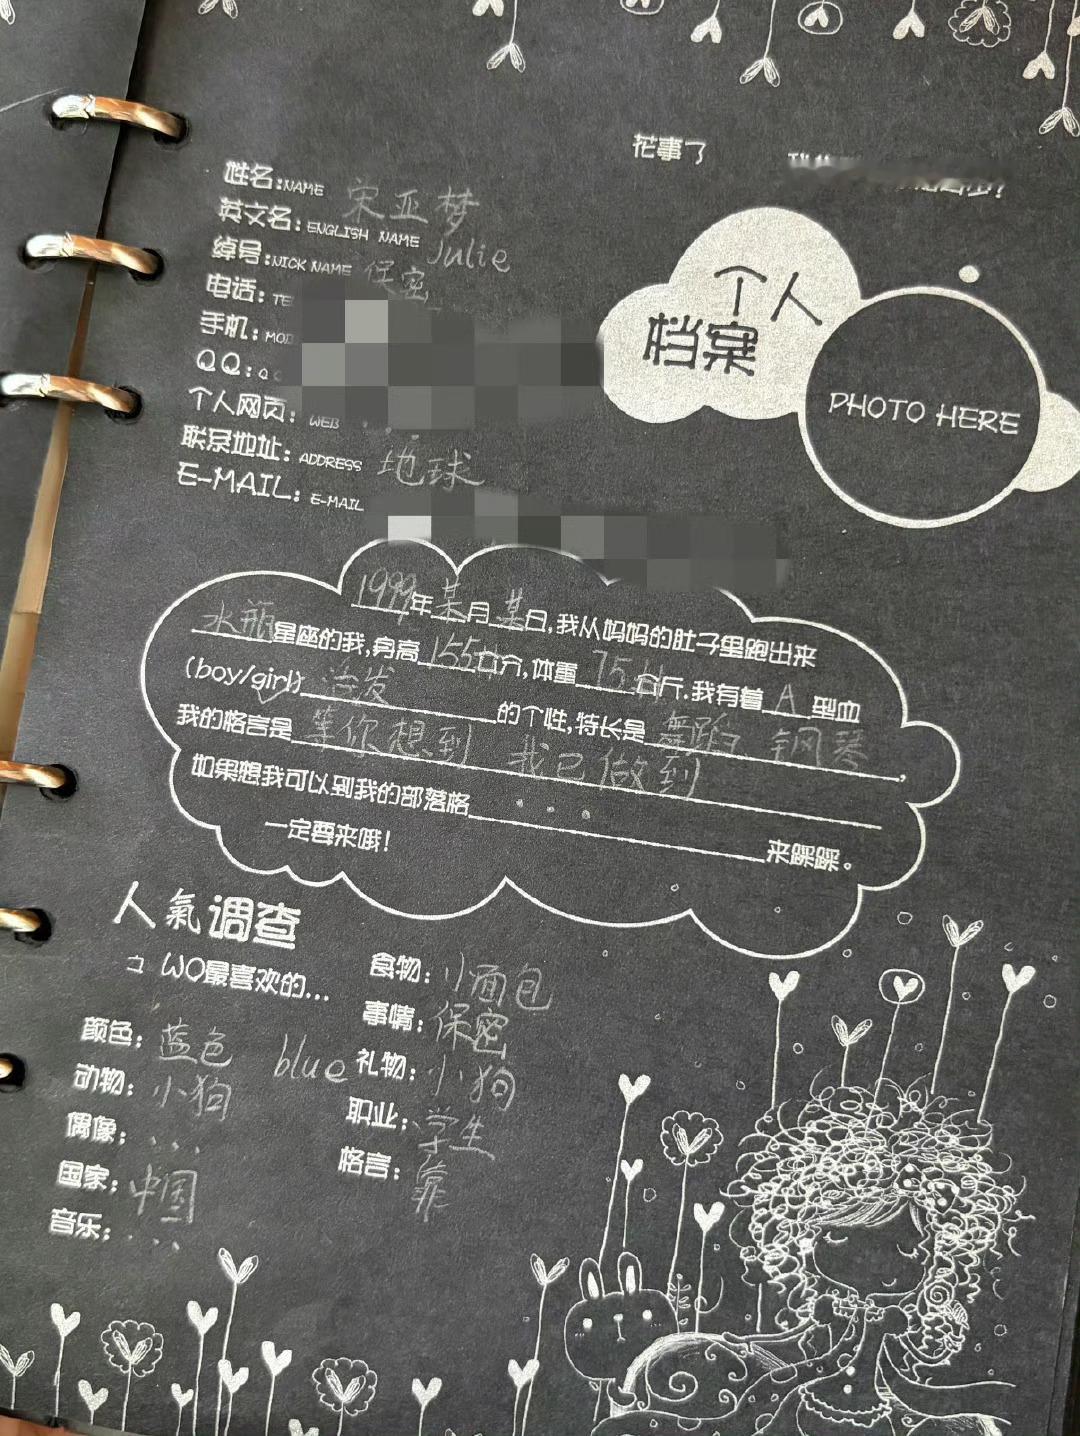 花事了
姓名:NAME 宋亚梦
英文名:ENGLISH NAME Julie
绰号:NICK NAME 保密
电话:TE
手机:MOD
QQ:QQ
个人网页:WEB
联系地址:ADDRESS 地球
E-MAIL:E-MAIL
个人
档案
PHOTO HERE
1999年某月某日,我从妈妈的肚子里跑出来
水瓶星座的我,身高155公分,体重75公斤.我有着A型血
(boy/girl)活发的个性,特长是舞蹈 钢琴,
我的格言是等你想到 我已做到
如果想我可以到我的部落格...来踩踩。
一定要来哦!
人氣调查
WO最喜欢的...
颜色:蓝色 blue
动物:小狗
偶像:...
国家:中国
音乐:...
食物:小面包
事情:保密
礼物:小狗
职业:学生
格言:靠